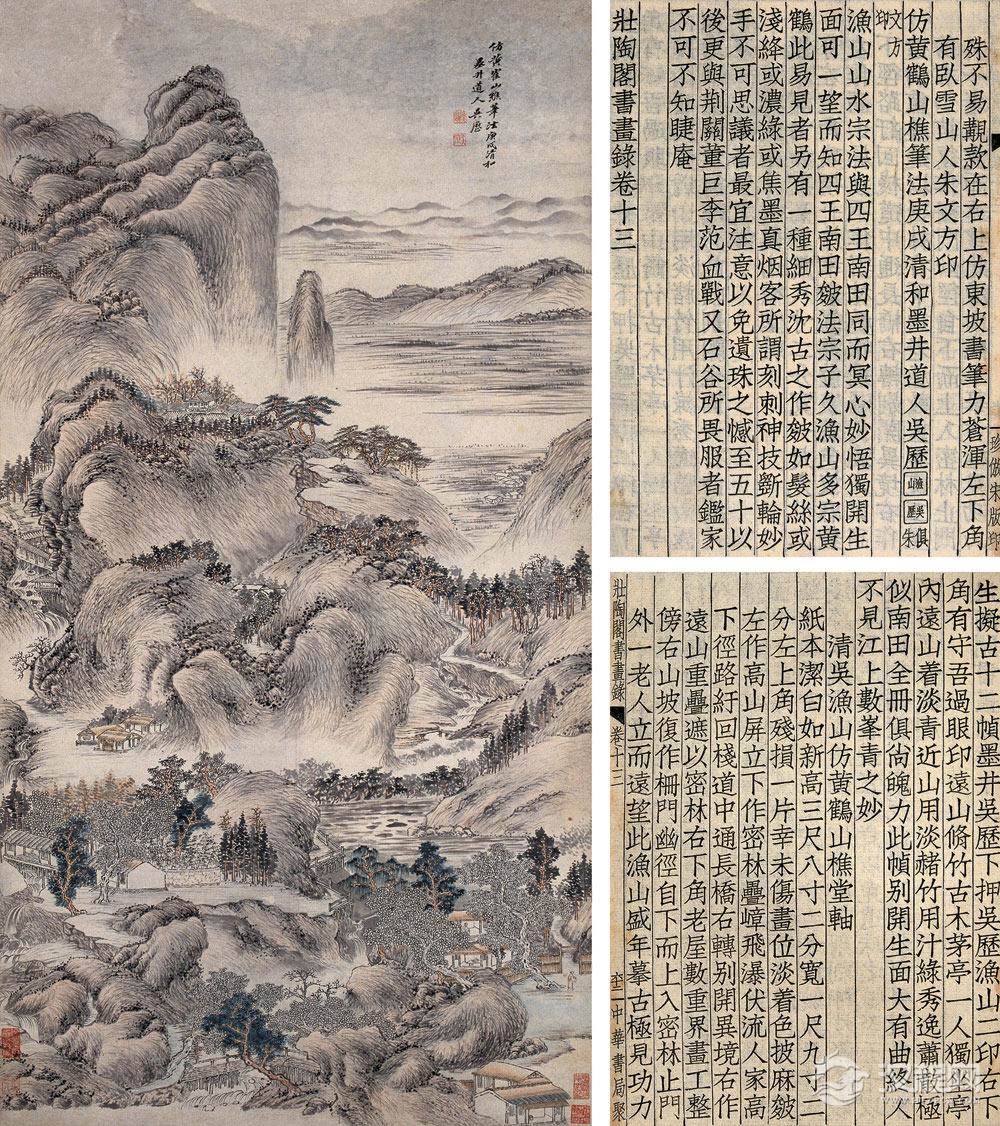 仿黃鶴山樵筆法庚戌清和
墨井道人吳歷
殊不易觀款在右上仿東坡書筆力蒼渾左下角
有臥雪山人朱文方印
仿黃鶴山樵筆法庚戌清和墨井道人吳歷
漁山
吳歷
俱朱
文方
印
漁山山水宗法與四王南田同而冥心妙悟獨開生
面可一望而知四王南田皴法宗子久漁山多宗黃
鶴此易見者另有一種細秀沈古之作皴如髮絲或
淺絳或濃綠或焦墨真烟客所謂刻刺神技斲輪妙
手不可思議者最宜注意以免遺珠之憾至五十以
後更與荆關董巨李范血戰又石谷所畏服者鑑家
不可不知睫庵
壯陶閣書畫錄卷十三
珍倣宋版印
生擬古十二幀墨井吳歷下押吳歷漁山二印右下
角有守吾過眼印遠山脩竹古木茅亭一人獨坐亭
內遠山着淡青近山用淡赭竹用汁綠秀逸蕭散極
似南田全冊俱尙魄力此幀别開生面大有曲終人
不見江上數峯青之妙
清吳漁山仿黃鶴山樵堂軸
紙本潔白如新高三尺八寸二分寬一尺九寸二
分左上角殘損一片幸未傷畫位淡着色披麻皴
左作高山屏立下作密林疊嶂飛瀑伏流人家高
下徑路紆回棧道中通長橋右轉别開異境右作
遠山重疊遮以密林右下角老屋數重界畫工整
傍右山坡復作柵門幽徑自下而上入密林止門
外一老人立而遠望此漁山盛年摹古極見功力
壯陶閣書畫錄
卷十三
中華書局聚